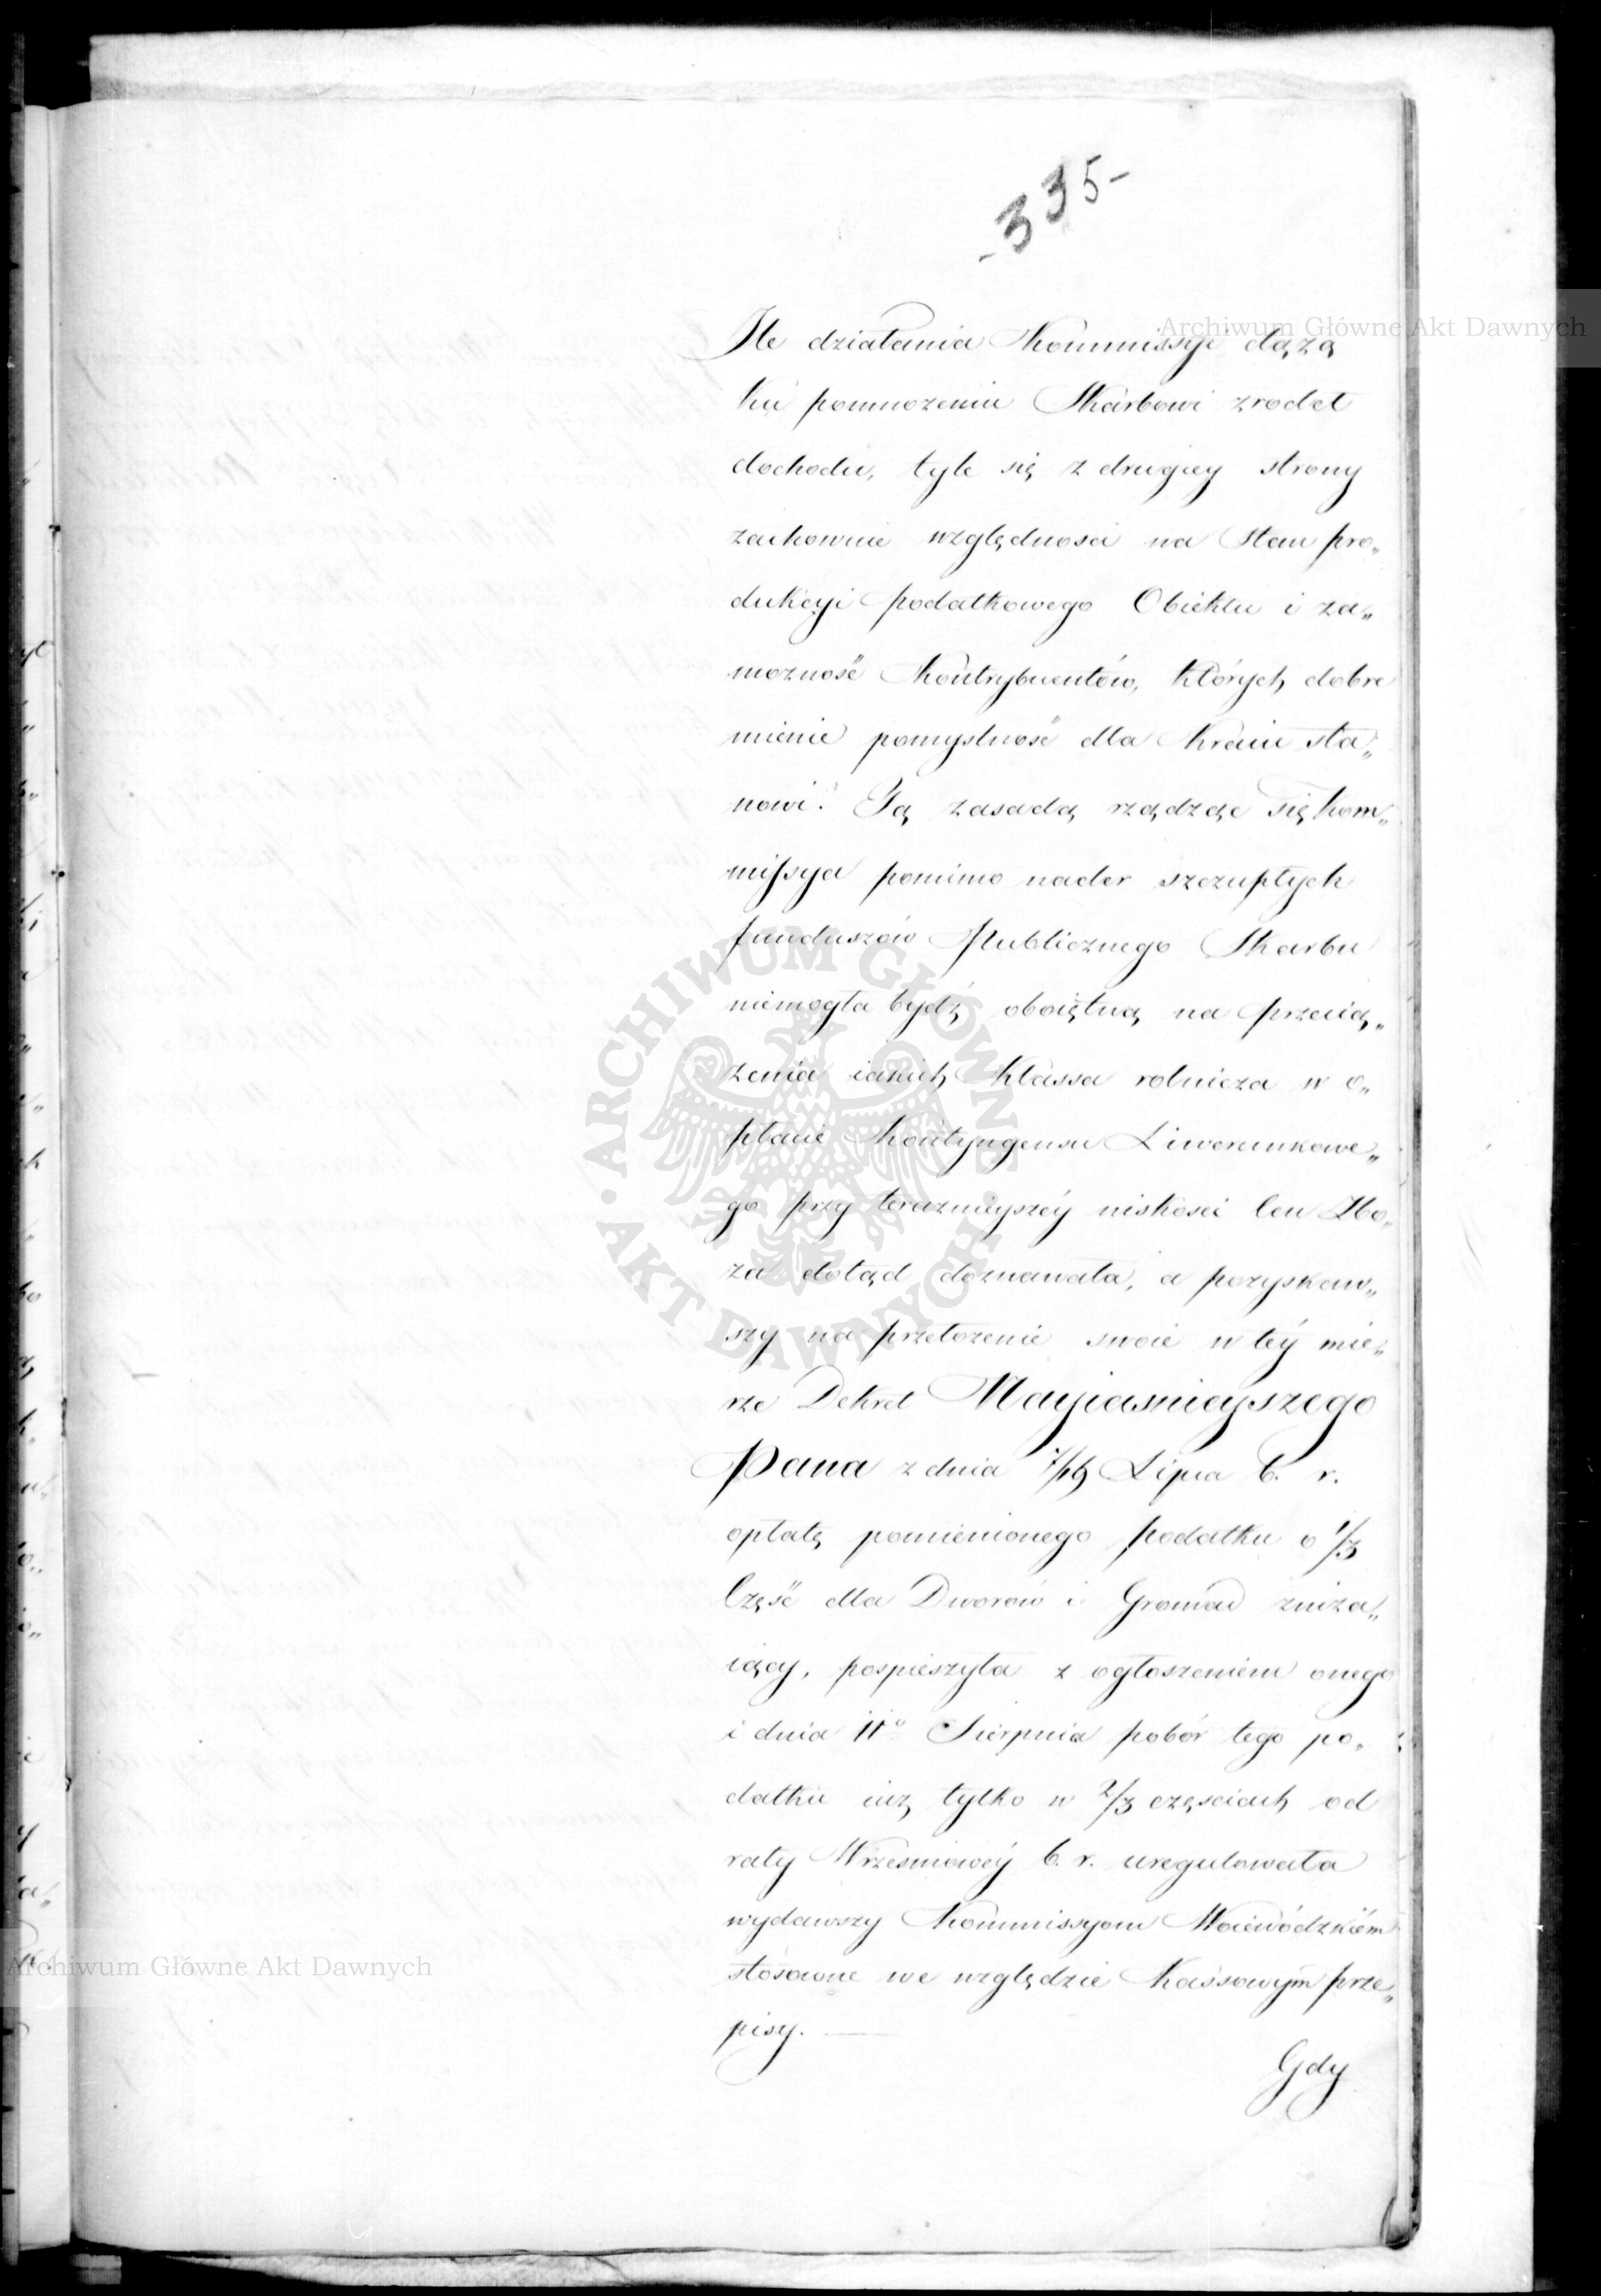 -335-
Archiwum Główne Akt Dawnych
Ile działania Kommissyi dążą
ku pomnozeniu Skarbowi zrodeł
dochodu, tyle się z drugiey strony
zachowuie względnosci na Stan pro„
dukcyi podatkowego Obiektu i za„
moznosć Kontrybuentów, których dobre
mienie pomyslnosć dla Kraiu sta„
nowi. Tą zasadą rządząc się kom„
missya pomimo nader szczupłych
funduszów Publicznego Skarbu
niemogła bydź oboiętną na przecią„
zenia iakich Klassa rolnicza w o„
płacie Kontyngensu Liwerunkowe„
go przy teraznieyszéy niskosci Cen Zbo„
za dotąd doznawała, a pozyskaw„
szy na przełozenie swoie w téy mie„
rze Dekret Nayiasnieyszego
Pana z dnia 7/19 Lipca b. r.
opłatę pomienionego podatku o 1/3
Częsć dla Dworów i Gromad zniza„
iący, pospieszyła z ogłoszeniem onego
i dnia 11º Sierpnia pobór tego po„
datku iuz tylko w 2/3 częsciach od
raty Wrzesniowéy b. r. uregulowała
wydawszy Kommissyom Woiewódzkiém
stosowne we względzie Kassowym prze„
pisy.
Gdy
ARCHIWUM GŁÓWNE · AKT DAWNYCH ·
Archiwum Główne Akt Dawnych